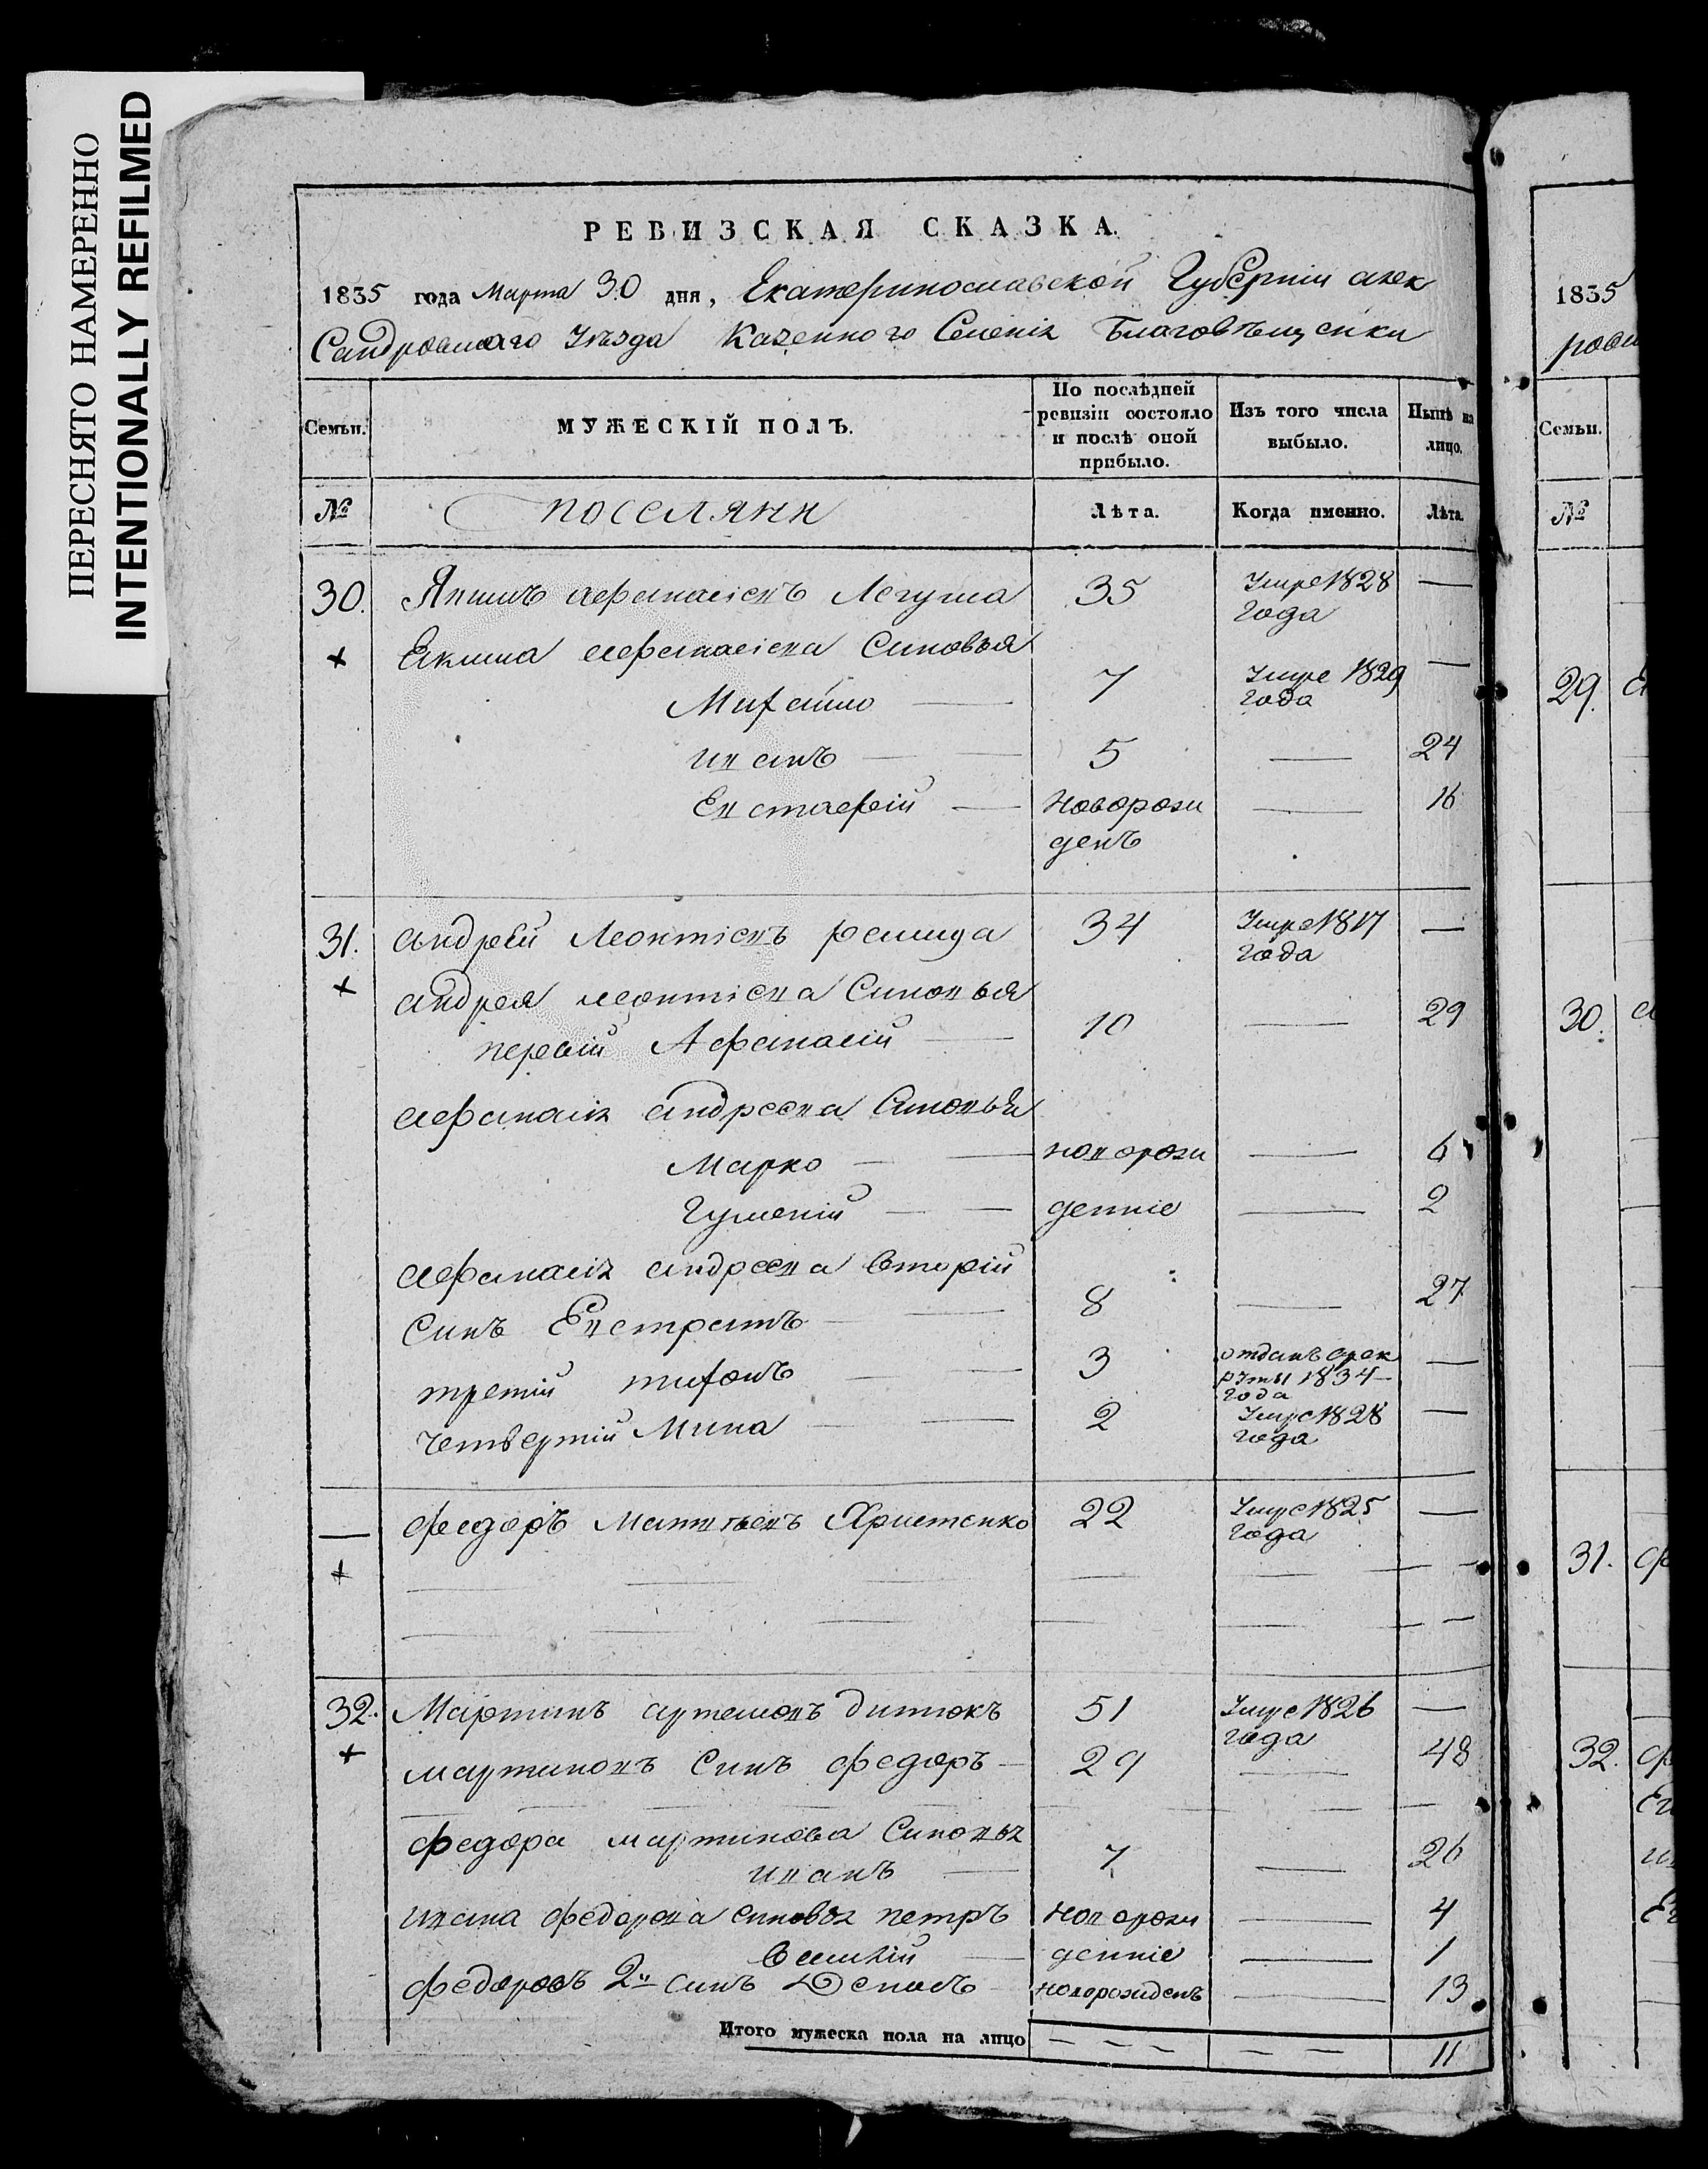 ПЕРЕСНЯТО НАМЕРЕННО
INTENTIONALLY REFILMED
РЕВИЗСКАЯ СКАЗКА.
1835 года Марта 30 дня, Екатеринославской Губернии алек
Сандровскаго Уѣзда Казенного Селенія Благовѣщенки
Семьи. МУЖЕСКІЙ ПОЛЪ. По послѣдней ревизіи состояло и послѣ оной прибыло. Изъ того числа выбыло. Нынѣ на лицо.
№ поселянн Лѣта. Когда именно. Лѣта.
30. Якимъ афанасіевъ Легуша 35 Умре 1828 года —
Екима афанасіева Синовья
Михайло — 7 Умре 1829 года —
иванъ — 5 — 24
Евстафій — новорож денъ — 16
31. андрей Леонтіевъ 34 Умре 1817 года —
андрея леонтіева Синовья
первій Афанасій — 10 — 29
афанасія андреева Синовья
Марко — новорож — 6
Гуменій — денніе — 2
афанасія андреева вторій
Синъ Евстратъ — 8 — 27
третій тихонъ — 3 отданъ врек руты 1834 года —
четвертій Мина — 2 Умре 1828 года —
— федоръ Матвѣевъ Христенко 22 Умре 1825 года —
32. Мартинъ артемовъ дитюкъ 51 Умре 1826 года —
мартиновъ Синъ федоръ — 29 — 48
федора мартинова Синовья
иванъ — 7 — 26
ивана федорова синовья петръ новорож — 4
Василій — денніе — 1
федоровъ 2й синъ Денисъ новорожденъ — 13
Итого мужеска пола на лицо — — — — — 11
1835
Семьи.
№
29.
30.
31.
32.